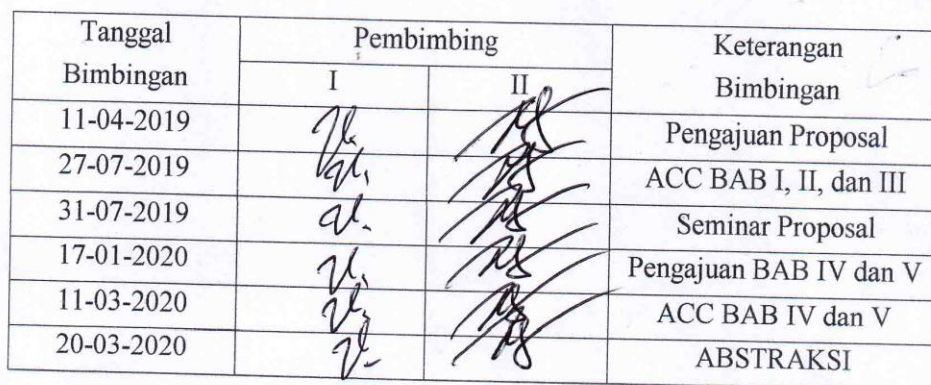 Tanggal Bimbingan Pembimbing Keterangan Bimbingan
I II
11-04-2019 Pengajuan Proposal
27-07-2019 ACC BAB I, II, dan III
31-07-2019 Seminar Proposal
17-01-2020 Pengajuan BAB IV dan V
11-03-2020 ACC BAB IV dan V
20-03-2020 ABSTRAKSI